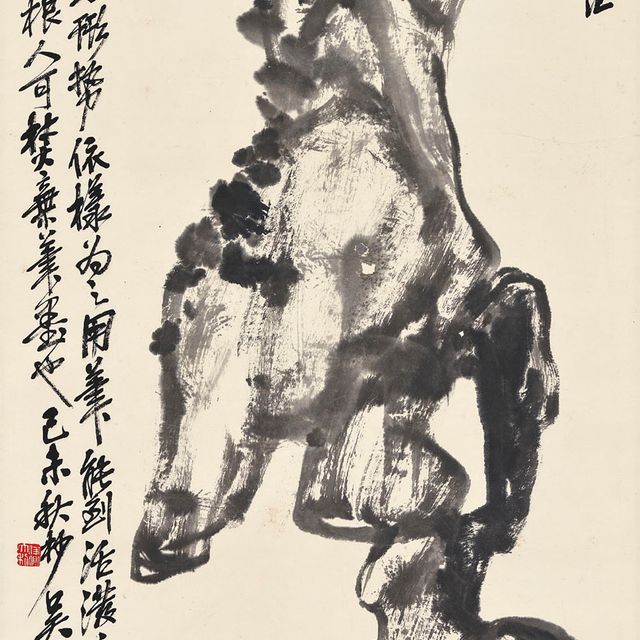 形勢依樣為之用筆能到活潑
根人可焚棄筆墨也己未秋杪吳